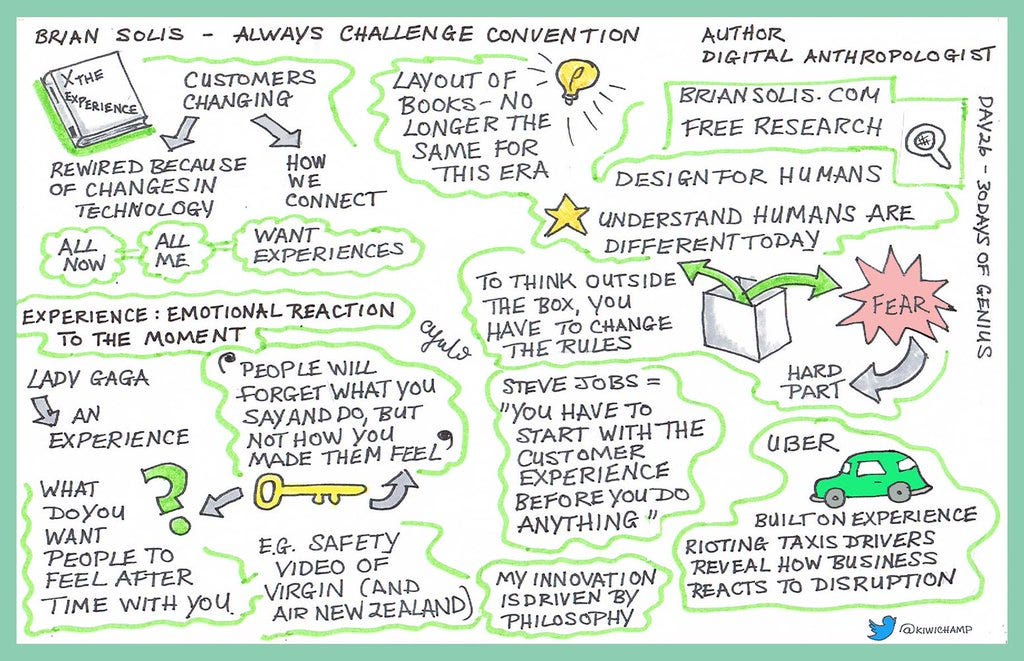 BRIAN SOLIS - ALWAYS CHALLENGE CONVENTION
AUTHOR
DIGITAL ANTHROPOLOGIST
X-THE
EXPERIENCE
CUSTOMERS
CHANGING
REWIRED BECAUSE
OF CHANGES IN
TECHNOLOGY
HOW
WE
CONNECT
ALL
NOW
ALL
ME
WANT
EXPERIENCES
EXPERIENCE: EMOTIONAL REACTION
TO THE MOMENT
LADY GAGA
AN
EXPERIENCE
'PEOPLE WILL
FORGET WHAT YOU
SAY AND DO, BUT
NOT HOW YOU
MADE THEM FEEL'
WHAT
DO YOU
WANT
PEOPLE TO
FEEL AFTER
TIME WITH YOU.
?
E.G. SAFETY
VIDEO OF
VIRGIN (AND
AIR NEW ZEALAND)
LAYOUT OF
BOOKS - NO
LONGER THE
SAME FOR
THIS ERA
BRIANSOLIS.COM
FREE RESEARCH
#
DESIGN FOR HUMANS
UNDERSTAND HUMANS ARE
DIFFERENT TODAY
TO THINK OUTSIDE
THE BOX, YOU
HAVE TO CHANGE
THE RULES
FEAR
HARD
PART
STEVE JOBS =
"YOU HAVE TO
START WITH THE
CUSTOMER
EXPERIENCE
BEFORE YOU DO
ANYTHING"
MY INNOVATION
IS DRIVEN BY
PHILOSOPHY
UBER
BUILT ON EXPERIENCE
RIOTING TAXIS DRIVERS
REVEAL HOW BUSINESS
REACTS TO DISRUPTION
DAY 26 - 30 DAYS OF GENIUS
@KIWICHAMP